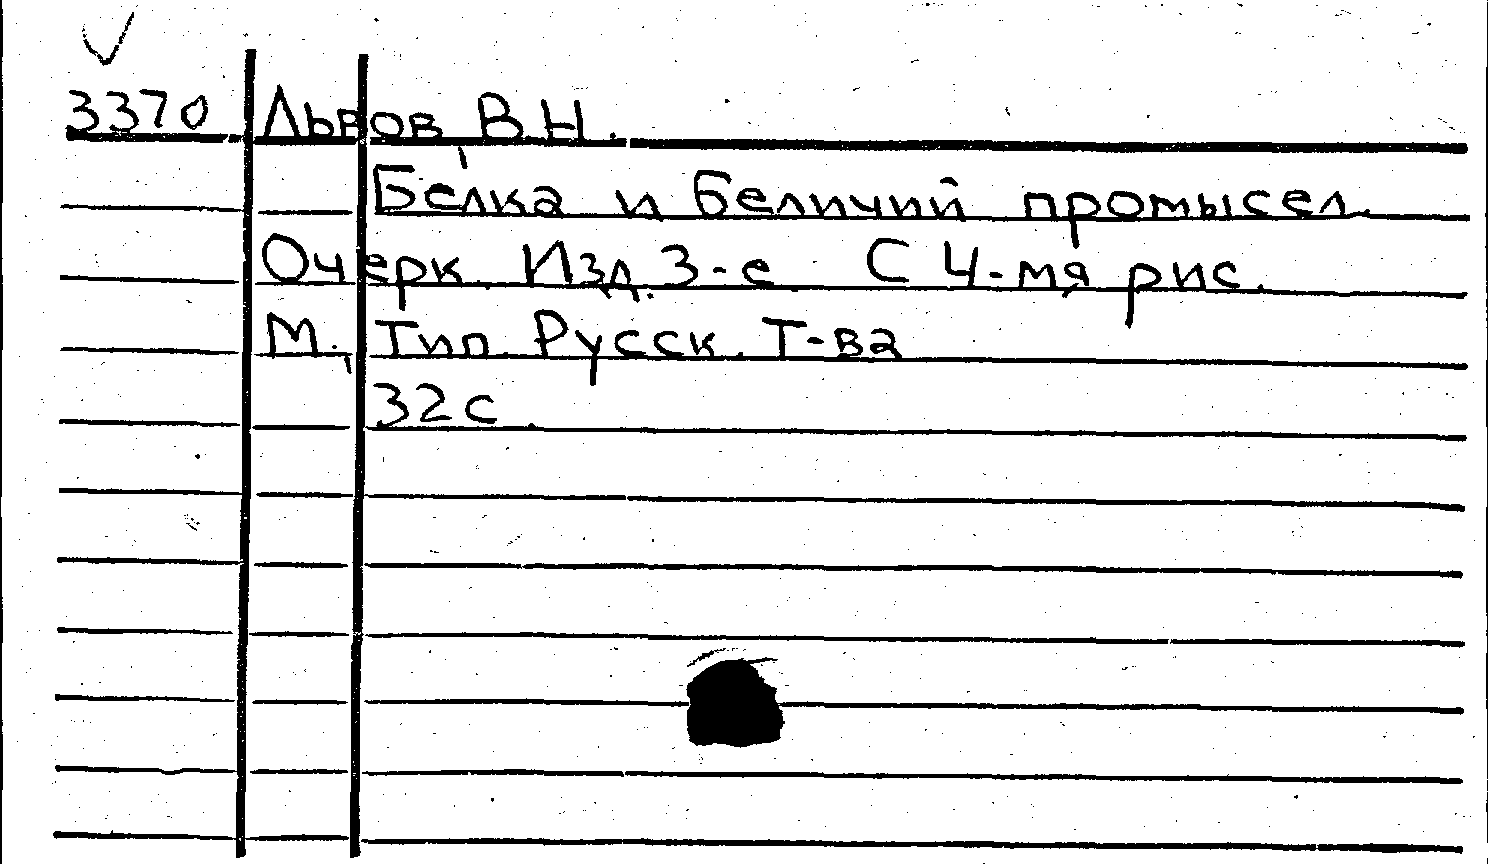 3370 Львов В.Н.
Белка и беличий промысел.
Очерк. Изд. 3-е. С 4-мя рис.
М., Тип. Русск. Т-ва
32 с.